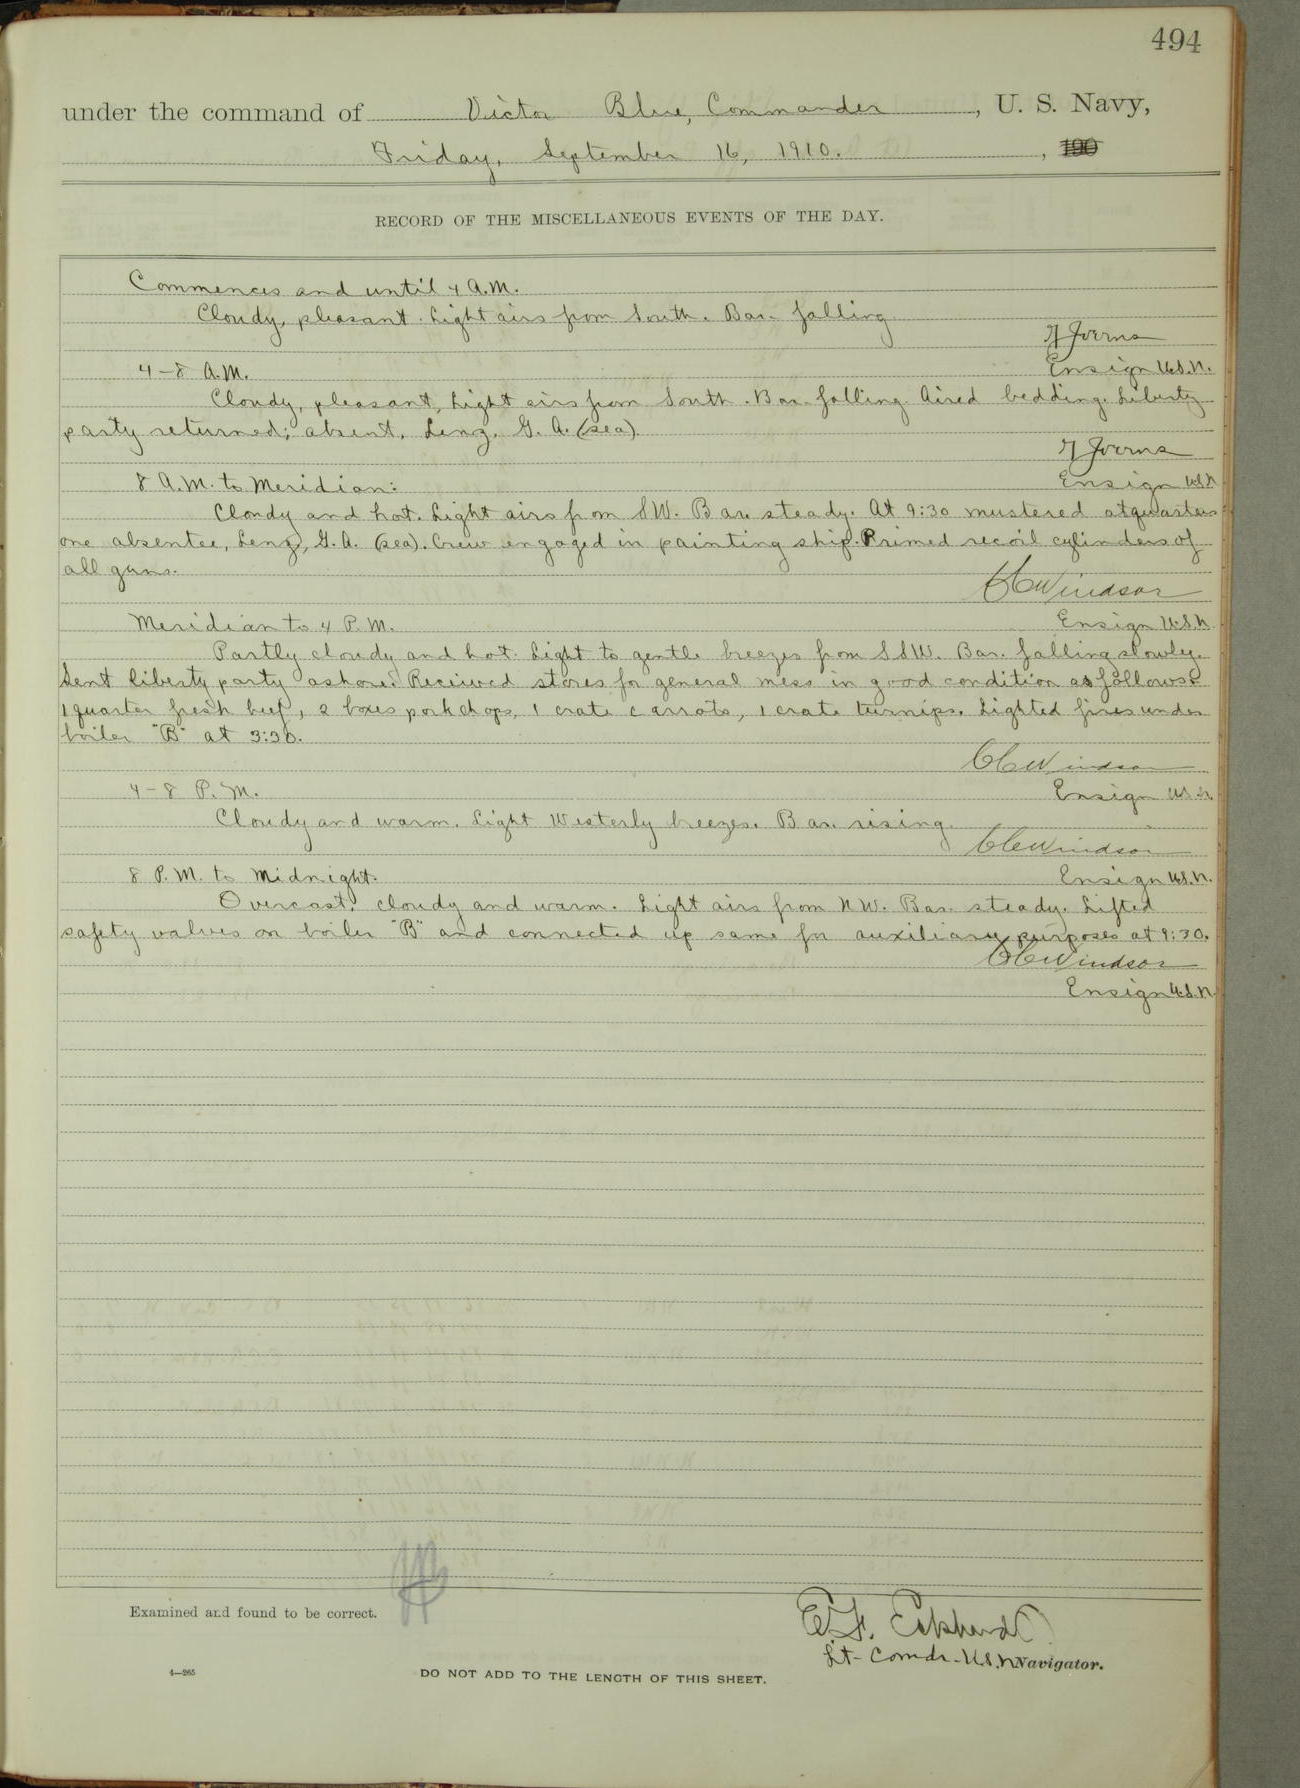 494
under the command of Victor Blue, Commander, U. S. Navy,
Friday, September 16, 1910. , 190
RECORD OF THE MISCELLANEOUS EVENTS OF THE DAY.
Commences and until 4 A.M.
Cloudy, pleasant. Light airs from South. Bar. falling
Ensign U.S.N.
4-8 A.M.
Cloudy, pleasant, Light airs from South. Bar. falling. Aired bedding. Liberty
party returned; absent, Lenz, G. A. (sea)
Ensign U.S.N
8 A.M. to Meridian:
Cloudy and hot. Light airs from SW. Bar. steady. At 9:30 mustered at quarters
one absentee, Lenz, G. A. (sea). Crew engaged in painting ship. Primed recoil cylinders of
all guns.
CCWindsor
Ensign U.S.N.
Meridian to 4 P.M.
Partly cloudy and hot. Light to gentle breezes from SSW. Bar. falling slowly.
Sent liberty party ashore. Received stores for general mess in good condition as follows:
1 quarter fresh beef, 2 boxes pork chops, 1 crate carrots, 1 crate turnips. Lighted fires under
boiler "B" at 3:30.
CCWindsor
Ensign U.S.N.
4-8 P.M.
Cloudy and warm. Light Westerly breezes. Bar. rising.
CCWindsor
Ensign U.S.N.
8 P.M. to Midnight.
Overcast, cloudy and warm. Light airs from NW. Bar. steady. Lifted
safety valves on boiler "B" and connected up same for auxiliary purposes at 9:30.
CCWindsor
Ensign U.S.N.
Examined and found to be correct.
E. F. Eckhardt
Lt-Comdr. U.S.N. Navigator.
4—265
DO NOT ADD TO THE LENGTH OF THIS SHEET.